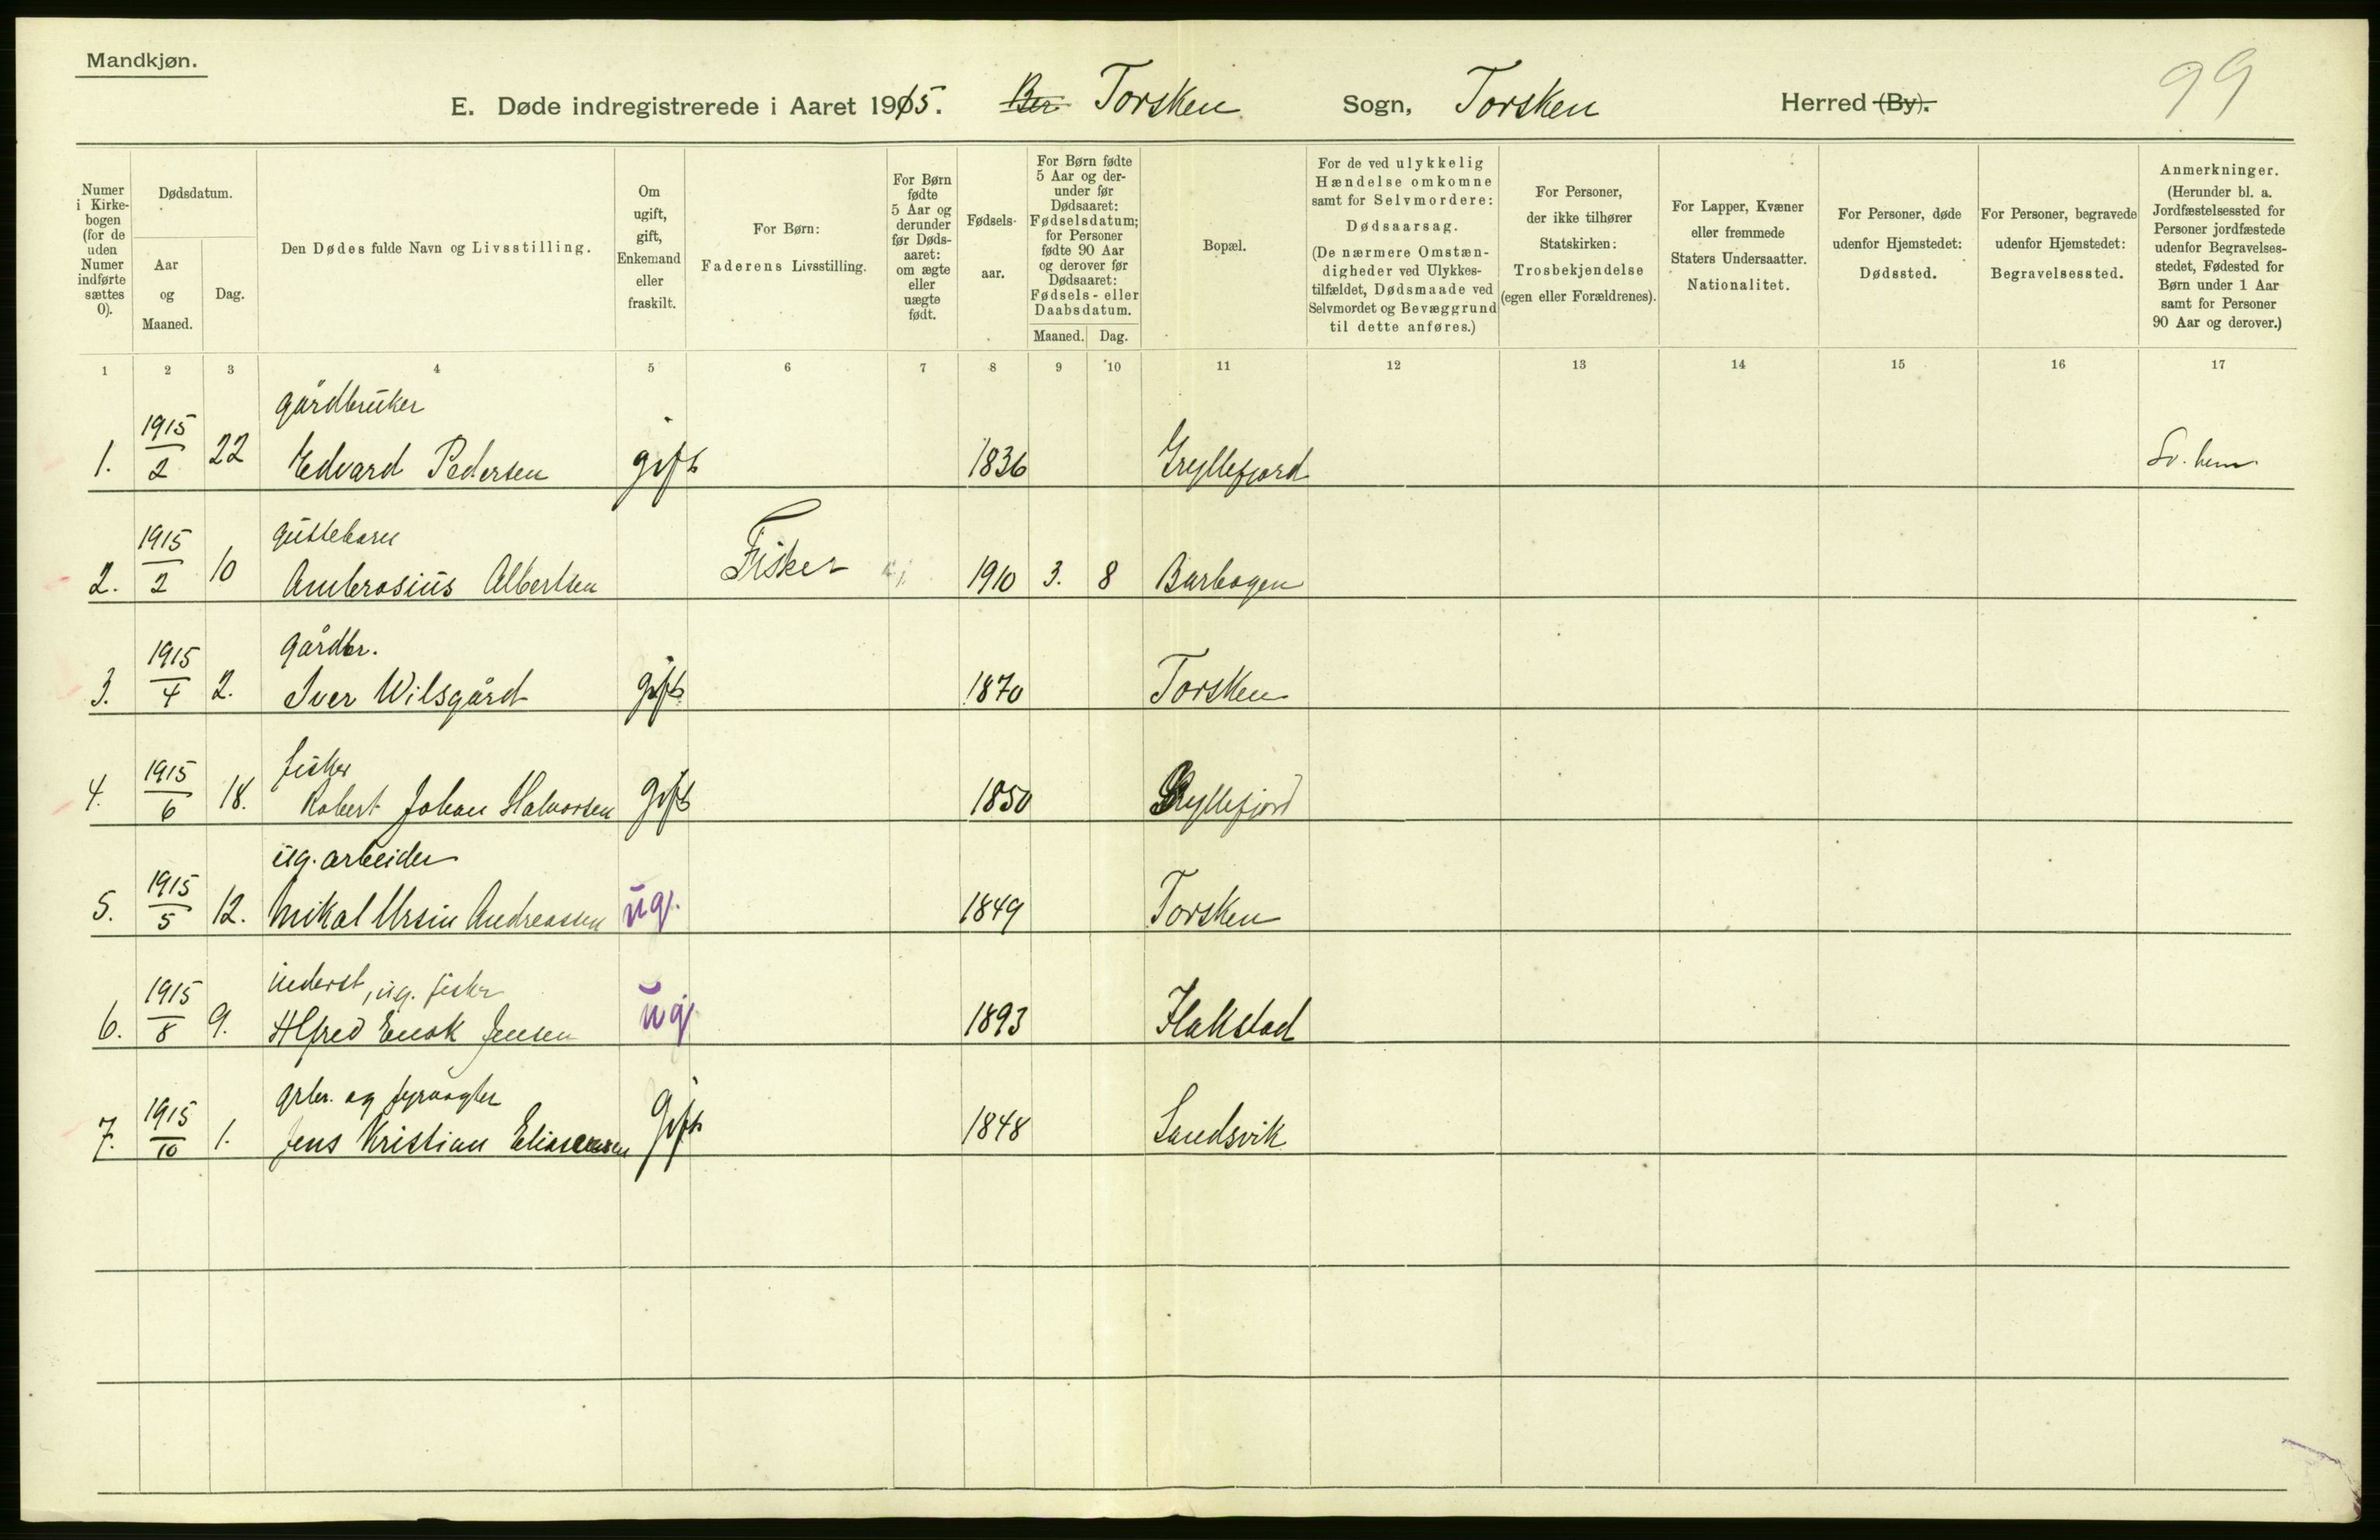 Mandkjøn.
99
E. Døde indregistrerede i Aaret 1915. Ber Torsken Sogn, Torsken Herred (By).
Numer i Kirke-bogen (for de uden Numer indførte sættes 0).
Dødsdatum.
Aar og Maaned.
Dag.
Den Dødes fulde Navn og Livsstilling.
Om ugift, gift, Enkemand eller fraskilt.
For Børn: Faderens Livsstilling.
For Børn fødte 5 Aar og derunder før Døds-aaret: om ægte eller uægte født.
Fødsels-aar.
For Børn fødte 5 Aar og der-under før Dødsaaret: Fødselsdatum; for Personer fødte 90 Aar og derover før Dødsaaret: Fødsels- eller Daabsdatum.
Maaned. Dag.
Bopæl.
For de ved ulykkelig Hændelse omkomne samt for Selvmordere: Dødsaarsag. (De nærmere Omstæn-digheder ved Ulykkes-tilfældet, Dødsmaade ved Selvmordet og Bevæggrund til dette anføres.)
For Personer, der ikke tilhører Statskirken: Trosbekjendelse (egen eller Forældrenes).
For Lapper, Kvæner eller fremmede Staters Undersaatter. Nationalitet.
For Personer, døde udenfor Hjemstedet: Dødssted.
For Personer, begravede udenfor Hjemstedet: Begravelsessted.
Anmerkninger. (Herunder bl. a. Jordfæstelsessted for Personer jordfæstede udenfor Begravelses-stedet, Fødested for Børn under 1 Aar samt for Personer 90 Aar og derover.)
1 2 3 4 5 6 7 8 9 10 11 12 13 14 15 16 17
gårdbruker
1. 1915/2 22 Edvard Pedersen gift 1836 Gryllefjord
guttebarn
2. 1915/2 10 Ambrosius Albertsen Fisker 1910 3. 8 Barbogen
gårdbr.
3. 1915/4 2. Iver Wilsgård gift 1870 Torsken
fisker
4. 1915/6 18. Robert Johan Halvorsen gift 1850 Gryllefjord
ug. arbeider
5. 1915/5 12. Mikal Ursin Andreassen ug. 1849 Torsken
inderst, ug. fisker
6. 1915/8 9. Alfred Enok Jensen ug. 1893 Flakstad
grbr. og fyrvogter
7. 1915/10 1. Jens Kristian Eliassen gift 1848 Sandsvik